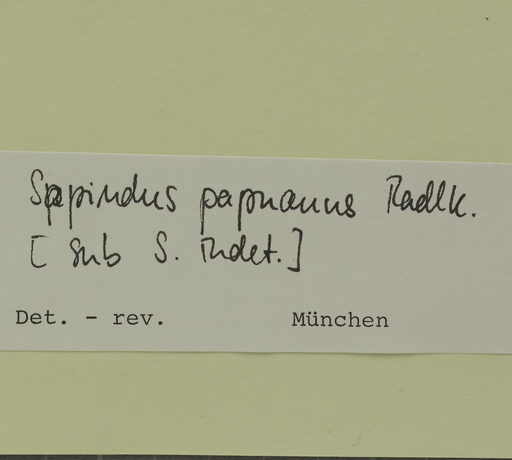 Sapindus papuanus Radlk.
[ sub S. indet.]
Det. - rev. München